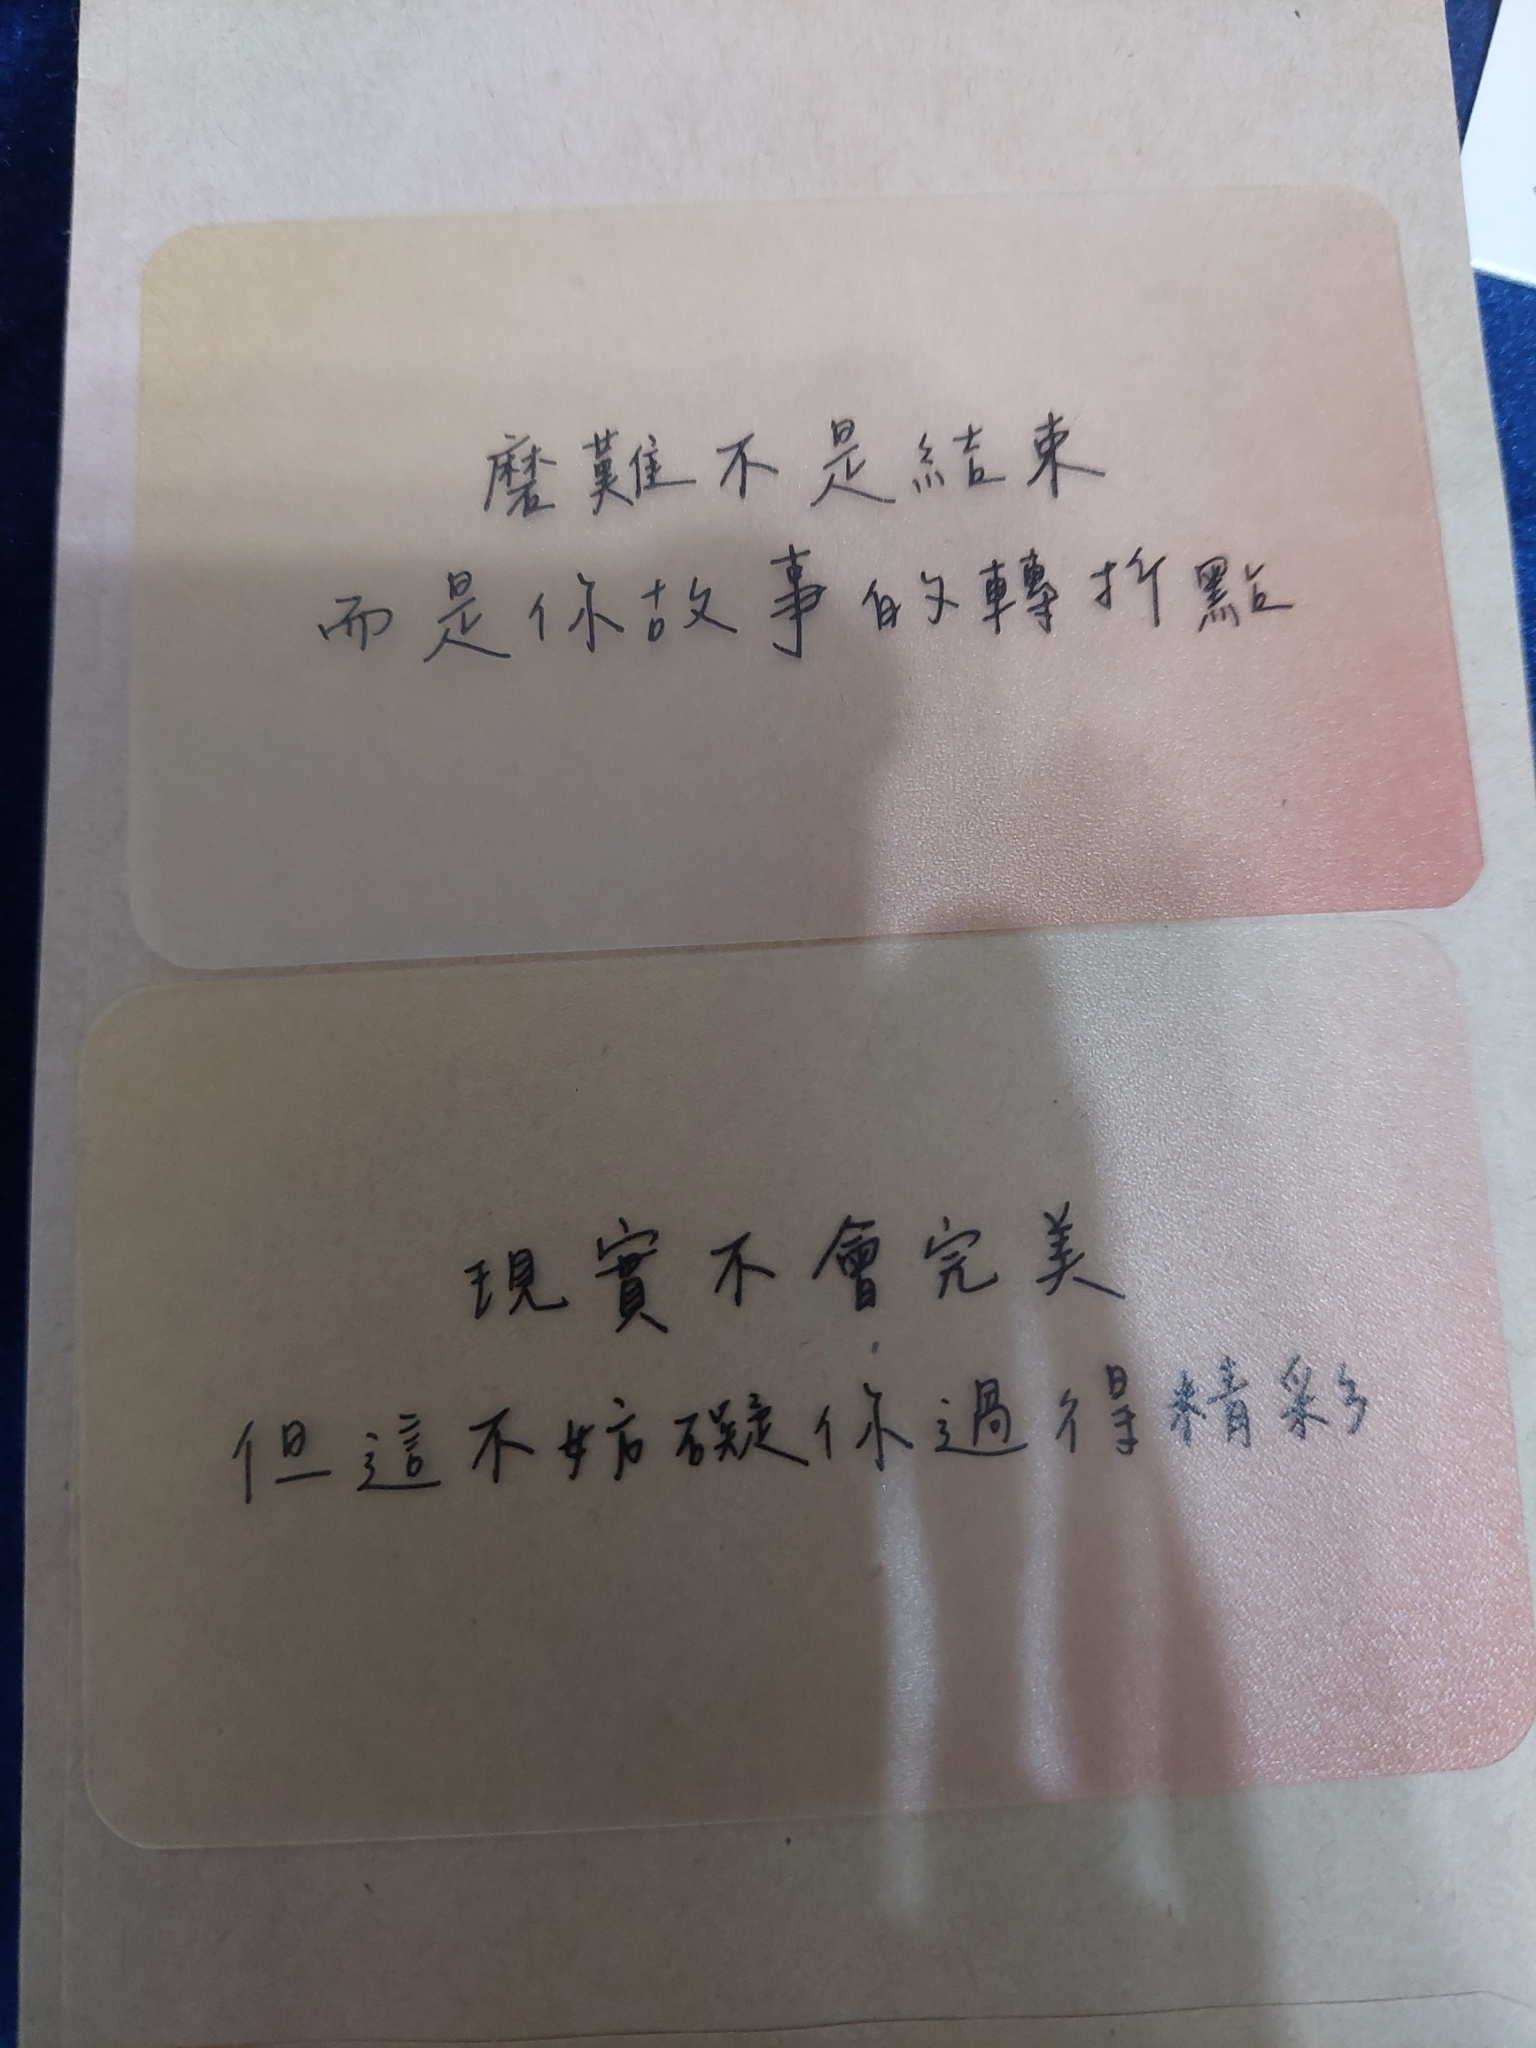 磨難不是結束
而是你故事的轉折點
現實不會完美
但這不妨礙你過得精彩